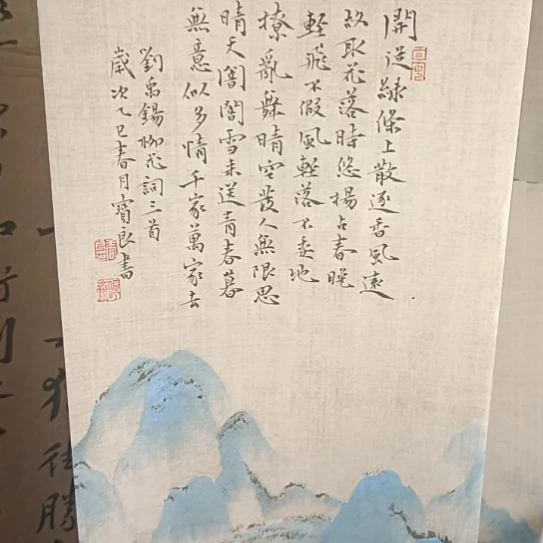 開從綠條上散逐香風遠
故取花落時悠揚占春晚
輕飛不假風輕落不委地
撩亂舞晴空發人無限思
晴天闇闇雪來送青春暮
無意似多情千家萬家去
劉禹錫柳花詞三首
歲次乙巳春月寶良書
往勝
行到